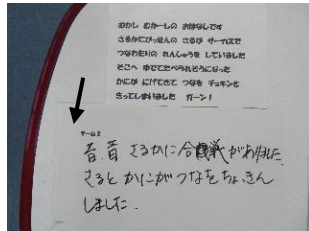 むかし むかーしの おはなしです
さるかにがっせんの さるが サーカスで
つなわたりの れんしゅうを していました
そこへ ゆでてたべられそうになった
かにが にげてきて つなを チョキンと
きってしまいました ガーン！
チーム2
昔昔 さるかに合戦がありました
さると かにがつなをちょきん
しました.